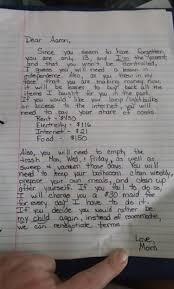 Dear Aaron,
Since you seem to have forgotten
you are only 13, and I'm the parent
and that you won't be controlled,
I guess you will need a lesson in
independence. Also, as you threw in my
face that you are making money now,
it will be easier to buy back all the
items I bought for you in the past.
If you would like your lamp/lightbulbs
or access to the internet, you will
need to pay your share of costs:
Rent - $430
Electricity - $116
Internet - $21
Food - $150
Also, you will need to empty the
trash Mon, Wed, + Friday, as well as
sweep + vacuum those days. You will
need to keep your bathroom clean weekly,
prepare your own meals, and clean up
after yourself. If you fail to do so,
I will charge you a $30 maid fee
for every day I have to do it.
If you decide you would rather be
my child again, instead of roommate,
we can renegotiate terms.
Love,
Mom